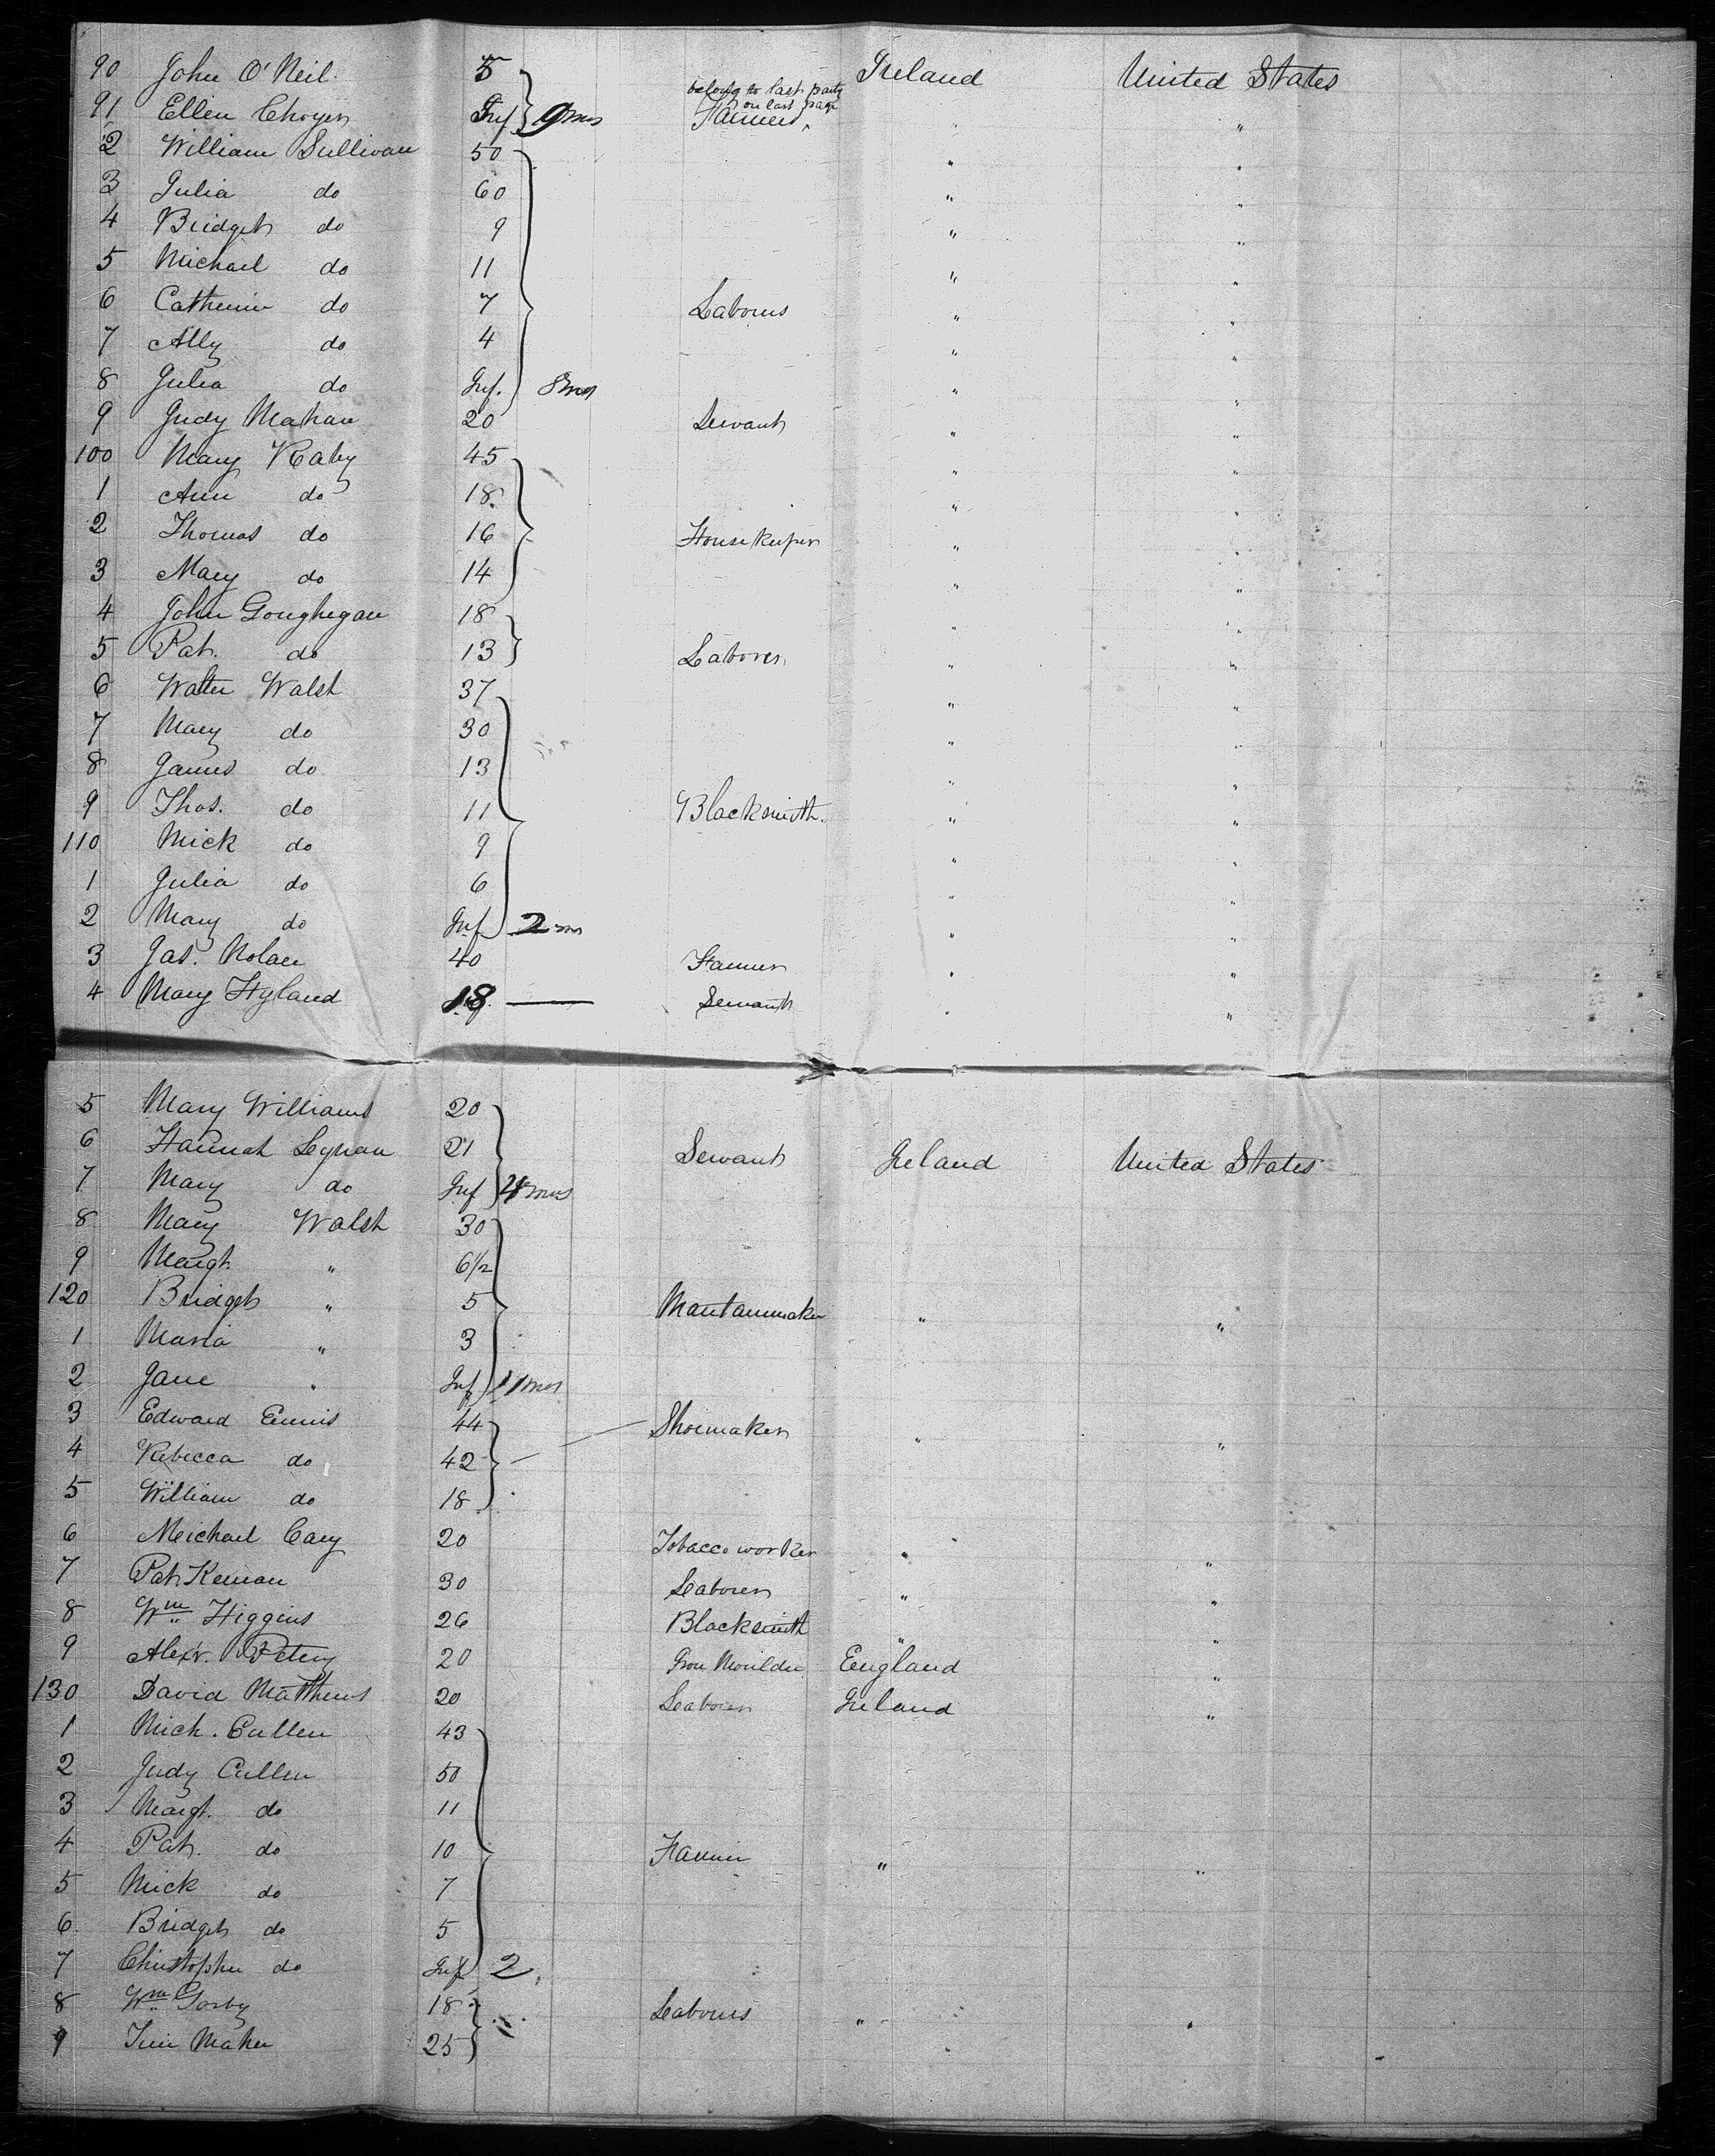 90 John O'Neil 5 Ireland United States
belong to last party
on last page
91 Ellen Inf 9 mos Farmers " "
2 William Sullivan 50 " "
3 Julia do 60 " "
4 Bridget do 9 " "
5 Michael do 11 " "
6 Catherine do 7 Labourers " "
7 Ally do 4 " "
8 Julia do Inf. 8 mos " "
9 Judy Mahan 20 Servant " "
100 Mary Raby 45 " "
1 Ann do 18 " "
2 Thomas do 16 Housekeeper " "
3 Mary do 14 " "
4 John Goughegan 18 " "
5 Pat. do 13 Laborer " "
6 Walter Walsh 37 " "
7 Mary do 30 " "
8 James do 13 " "
9 Thos. do 11 Blacksmith. " "
110 Mick do 9 " "
1 Julia do 6 " "
2 Mary do Inf 2 ms " "
3 Jas. Nolan 40 Farmer " "
4 Mary Hyland 18 Servant " "
5 Mary Williams 20
6 Hannah Lynan 21 Servant Ireland United States
7 Mary do Inf 4 mos
8 Mary Walsh 30
9 Margt. " 6½
120 Bridget " 5 Mantuamaker " "
1 Maria " 3
2 Jane " Inf 11 mos
3 Edward Ennis 44 Shoemaker " "
4 Rebecca do 42
5 William do 18
6 Meichael Cary 20 Tobacco worker " "
7 Pat. Kernan 30 Laborer " "
8 Wm Higgins 26 Blacksmith " "
9 Alexr. 20 Iron Moulder England "
130 David Matthews 20 Laborer Ireland "
1 Mich. Cullen 43
2 Judy Cullen 50
3 Margt. do 11
4 Pat. do 10 Farmer " "
5 Mick do 7
6. Bridget do 5
7 Christopher do Inf 2
8 Wm 18 Labourers " "
9 Tim Maher 25